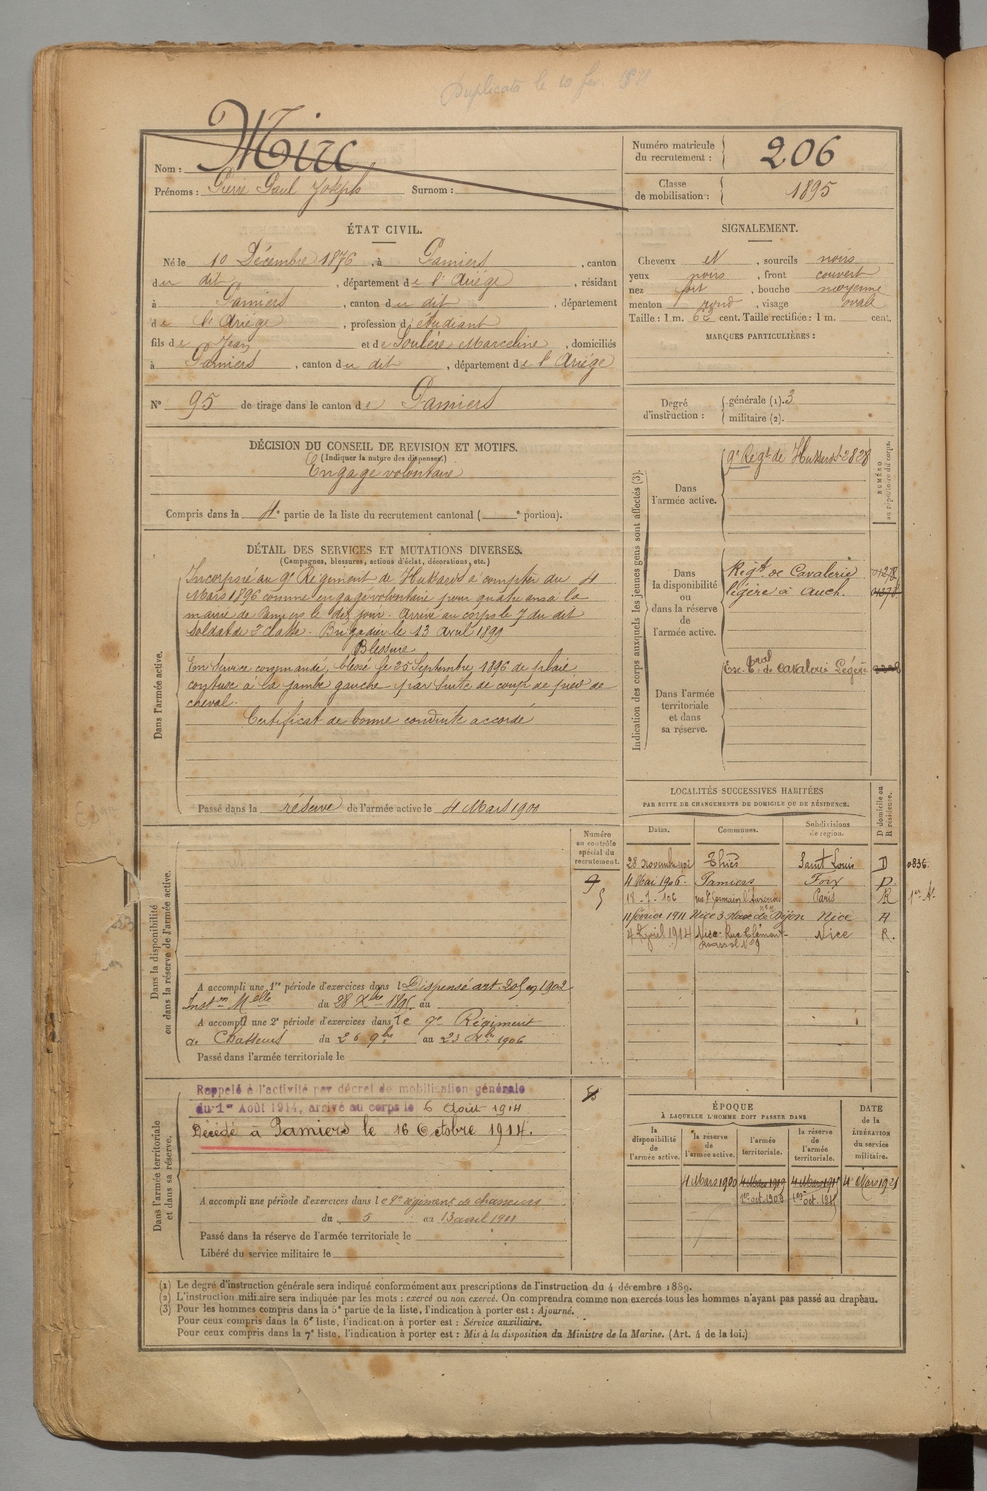 Duplicata le 10
Mirc
Nom :
Prénoms : Pierre Paul Joseph Surnom :
Numéro matricule du recrutement : 206
Classe de mobilisation : 1895
ÉTAT CIVIL.
Né le 10 Décembre 1876, à Pamiers, canton
du dit, département de l'Ariège, résidant
à Pamiers, canton du dit, département
de l'Ariège, profession d'étudiant
fils de Jean et de Soulère Marceline, domiciliés
à Pamiers, canton du dit, département de l'Ariège
N° 95 de tirage dans le canton de Pamiers
SIGNALEMENT.
Cheveux et N, sourcils noirs
yeux noirs, front couvert
nez fort, bouche moyenne
menton rond, visage ovale
Taille : 1 m. 62 cent. Taille rectifiée : 1 m. cent.
MARQUES PARTICULIÈRES :
Degré d'instruction : générale (1). 3
militaire (2).
DÉCISION DU CONSEIL DE REVISION ET MOTIFS.
(Indiquer la nature des dispenses.)
Engagé volontaire
Compris dans la 4e partie de la liste du recrutement cantonal ( e portion).
DÉTAIL DES SERVICES ET MUTATIONS DIVERSES.
(Campagnes, blessures, actions d'éclat, décorations, etc.)
Dans l'armée active.
Incorporé au 9e Régiment de Hussards à compter du 4
Mars 1896 comme engagé volontaire pour quatre ans à la
mairie de Pamiers le dit jour. Arrivé au corps le 7 du dit
Soldat de 2e classe. Brigadier le 13 avril 1899
Blessure
En service commandé, blessé le 25 Septembre 1896 de plaie
contuse à la jambe gauche par suite de coup de pied de
cheval.
Certificat de bonne conduite accordé
Passé dans la réserve de l'armée active le 4 Mars 1900
Indication des corps auxquels les jeunes gens sont affectés (3).
NUMÉRO au répertoire du corps.
Dans l'armée active.
9e Regt de Hussards 2828
Dans la disponibilité ou dans la réserve de l'armée active.
Regt de Cavalerie
légère à Auch.
Dans l'armée territoriale et dans sa réserve.
Esc. Tval de Cavalerie Légère
LOCALITÉS SUCCESSIVES HABITÉES
PAR SUITE DE CHANGEMENTS DE DOMICILE OU DE RÉSIDENCE.
Dates. Communes. Subdivisions de région. D domicile ou R résidence.
28 novembre 1902 Thiès Saint Louis D 0836
4 Mai 1906. Pamiers Foix D.
Paris R
11 février 1911 Nice 3 Place de Dijon Nice R
4 Avril 1914 Nice Rue Clément- Nice R.
Numéro au contrôle spécial du recrutement.
Dans la disponibilité ou dans la réserve de l'armée active.
A accompli une 1re période d'exercices dans l Dispensé art. 205 en 1902
Inston Melle du 28 Xbre 1895 au
A accompli une 2e période d'exercices dans le 9e Régiment
de Chasseurs du 26 9bre au 23 Xbre 1906
Passé dans l'armée territoriale le
Dans l'armée territoriale et dans sa réserve.
Rappelé à l'activité par décret de mobilisation générale
du 1er Août 1914, arrivé au corps le 6 Août 1914
Décédé à Pamiers le 16 Octobre 1914.
A accompli une période d'exercices dans le 9e régiment de chasseurs
du 5 au 13 avril 1911
Passé dans la réserve de l'armée territoriale le
Libéré du service militaire le
ÉPOQUE
À LAQUELLE L'HOMME DOIT PASSER DANS
la disponibilité de l'armée active. la réserve de l'armée active. l'armée territoriale. la réserve de l'armée territoriale.
DATE de la LIBÉRATION du service militaire.
4 Mars 1900 4 Mars 1910 4 Mars 1915 4 Mars 1921
1er oct. 1909 1er oct. 1915
(1) Le degré d'instruction générale sera indiqué conformément aux prescriptions de l'instruction du 4 décembre 1889.
(2) L'instruction militaire sera indiquée par les mots : exercé ou non exercé. On comprendra comme non exercés tous les hommes n'ayant pas passé au drapeau.
(3) Pour les hommes compris dans la 5e partie de la liste, l'indication à porter est : Ajourné.
Pour ceux compris dans la 6e liste, l'indication à porter est : Service auxiliaire.
Pour ceux compris dans la 7e liste, l'indication à porter est : Mis à la disposition du Ministre de la Marine. (Art. 4 de la loi.)